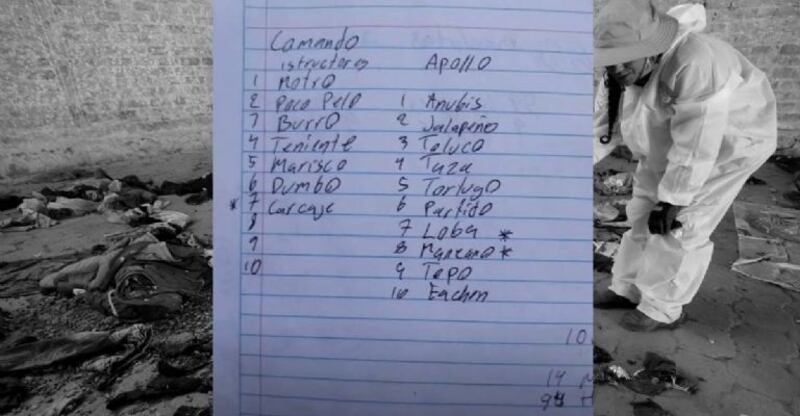 Comando
istructores
1 Motro
2 Poco Pelo
3 Burro
4 Teniente
5 Marisco
6 Dumbo
* 7 Carcaje
8
9
10
Apollo
1 Anubis
2 Jalapeño
3 Toluco
4 Tuza
5 Tortugo
6 Partido
7 Loba *
8 Manzano *
9 Topo
10
10